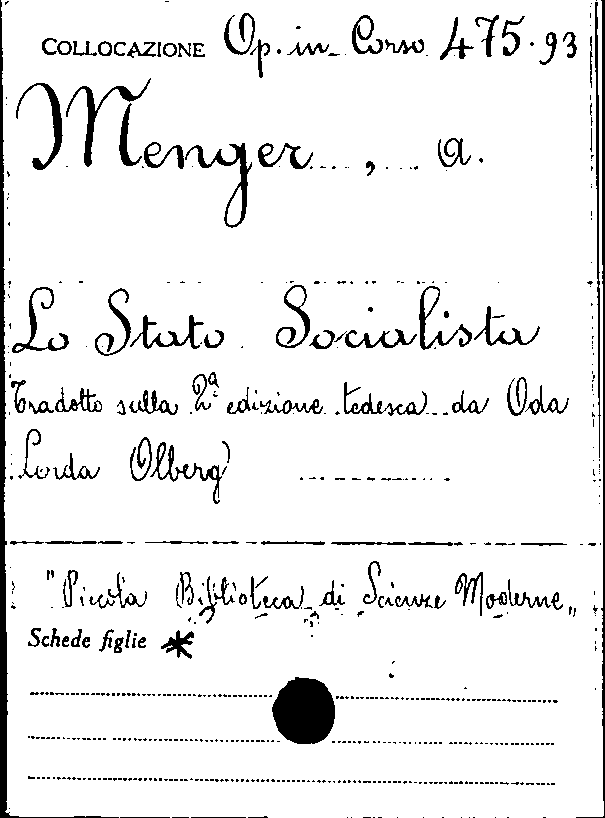 COLLOCAZIONE Op. in Corso 475.93
Menger, a.
Lo Stato Socialista
Tradotto sulla 2ª edizione tedesca da Oda
Lerda Olberg
"Piccola Biblioteca di Scienze Moderne„
Schede figlie *